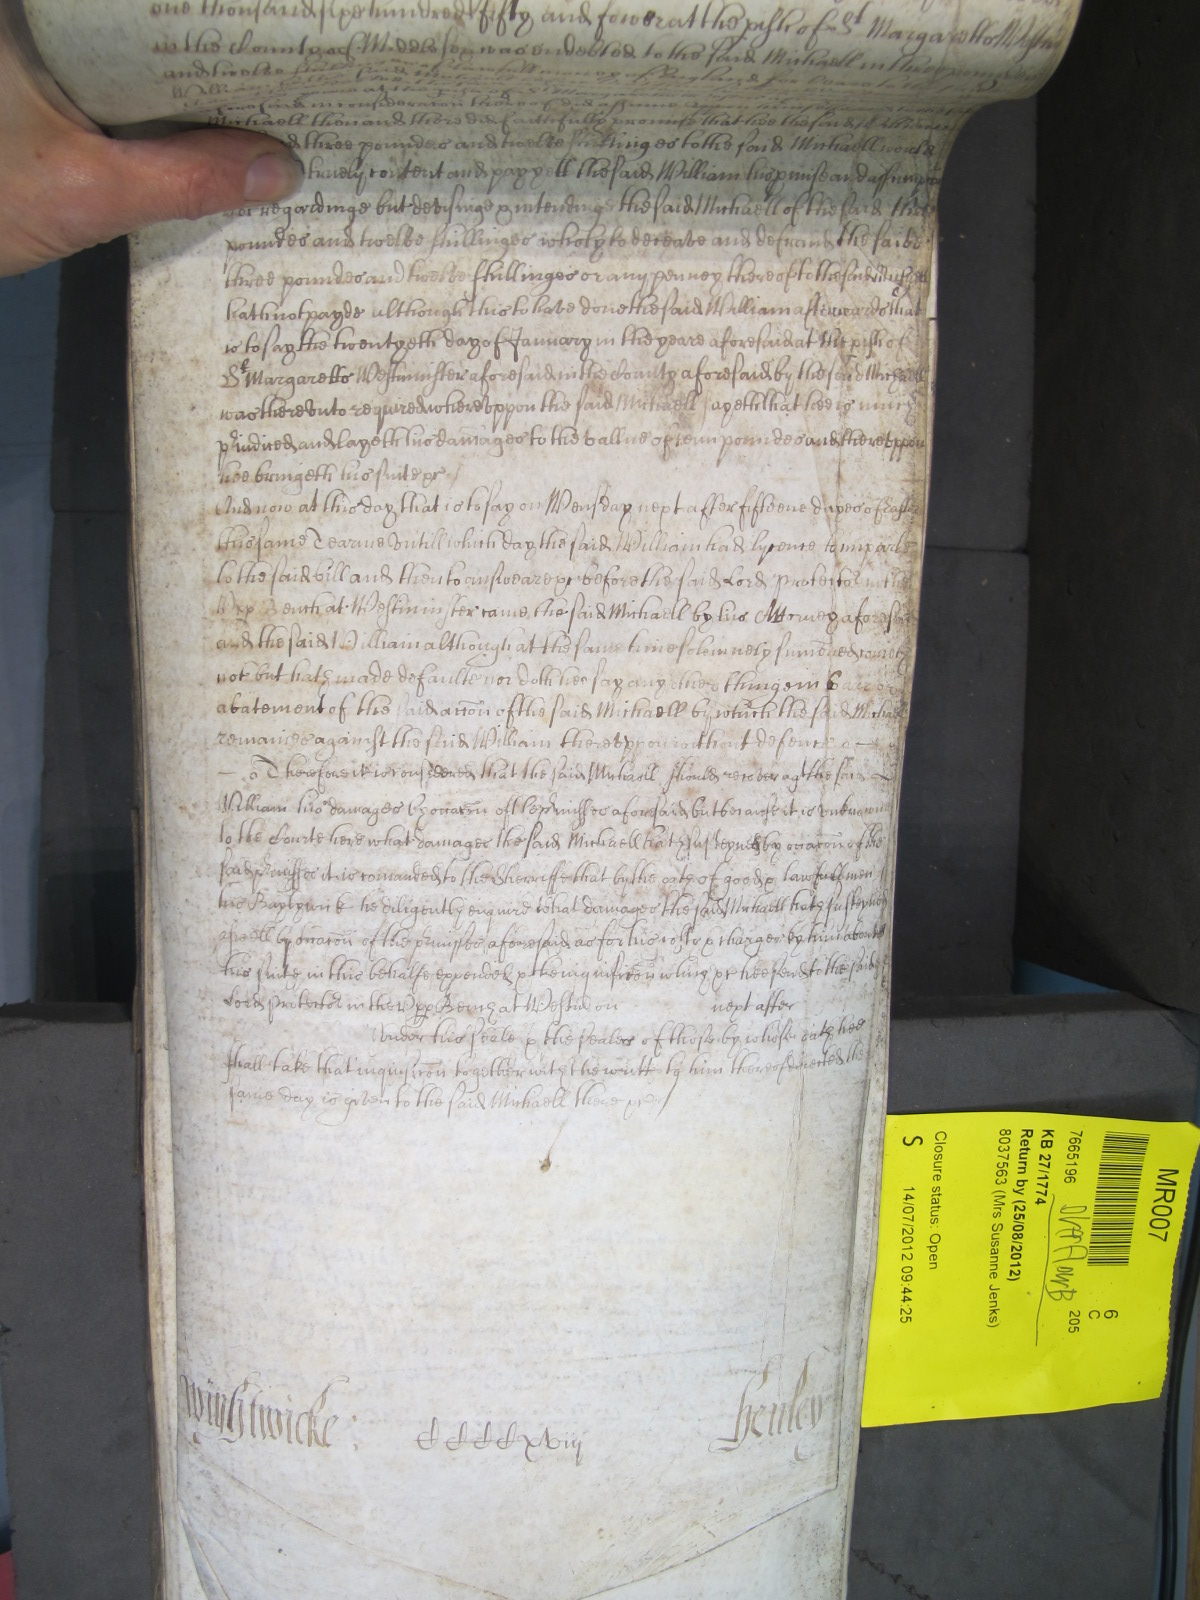 one thousand sixe hundred fifty and fower at the pish of St Margaretts Westm
in the County of Midd was endebted to the said Michaell in three pounds
and twelve
Michaell then and there did faithfully promise that hee the said William
three pounds and twelve shillinges to the said Michaell would
content and pay yett the said William his pmise and assumpcon
not regardinge but devisinge & intendinge the said Michaell of the said three
poundes and twelve shillinges wholy to deceave and defraud the saide
three poundes and twelve shillinges or any penney thereof to the said Michaell
hath not payde although this to have done the said William afterwards that
is to say the twentyeth day of January in the yeare aforesaid at the pish of
St Margaretts Westminster aforesaid in the County aforesaid by the said Michaell
was thereunto required whereuppon the said Michaell sayeth that hee is much
piudiced and layeth his damages to the vallue of tenn poundes and thereuppon
hee bringeth his suite &c
And now at this day that is to say on Wensday next after fifteene dayes of Easter
this same Tearme untill which day the said William had lycence to imparle
to the said bill and then to answeare &c before the said Lord Protector in the
Upp Bench at Westminster came the said Michaell by his Attorney aforesaid
and the said William although at the same time solemnely sumoned cometh
not but hath made defaulte nor doth hee say any other thinge in barr or
abatement of the said accon of the said Michaell by which the said Michaell
remaines against the said William thereupon without defence
Therefore it is considered that the said Michaell should recover agt the said
William his damages by occacon of the pmisses aforesaid but because it is unknowne
to the Courte here what damages the said Michaell hath susteyned by occacon of the
said pmisses it is comanded to the Sherriffe that by the oath of good & lawfull men
his Baylywick he diligently enquire what damages the said Michaell hath susteyned
aswell by occacon of the pmisses aforesaid as for his costs & charges by him about
his suite in this behalfe expended & the inquisicon wch &c hee send to the said
Lord Protector in the Upp Bench at Westm on next after
under his seale & the seales of those by whose oath hee
shall take that inquisicon together with the writt to him thereof directed the
same day is given to the said Michaell there &c
Wightwicke:
CCCCxviij
Henley
MR007
6
C
205
7665196
KB 27/1774
Return by (25/08/2012)
8037563 (Mrs Susanne Jenks)
Closure status: Open
S 14/07/2012 09:44:25